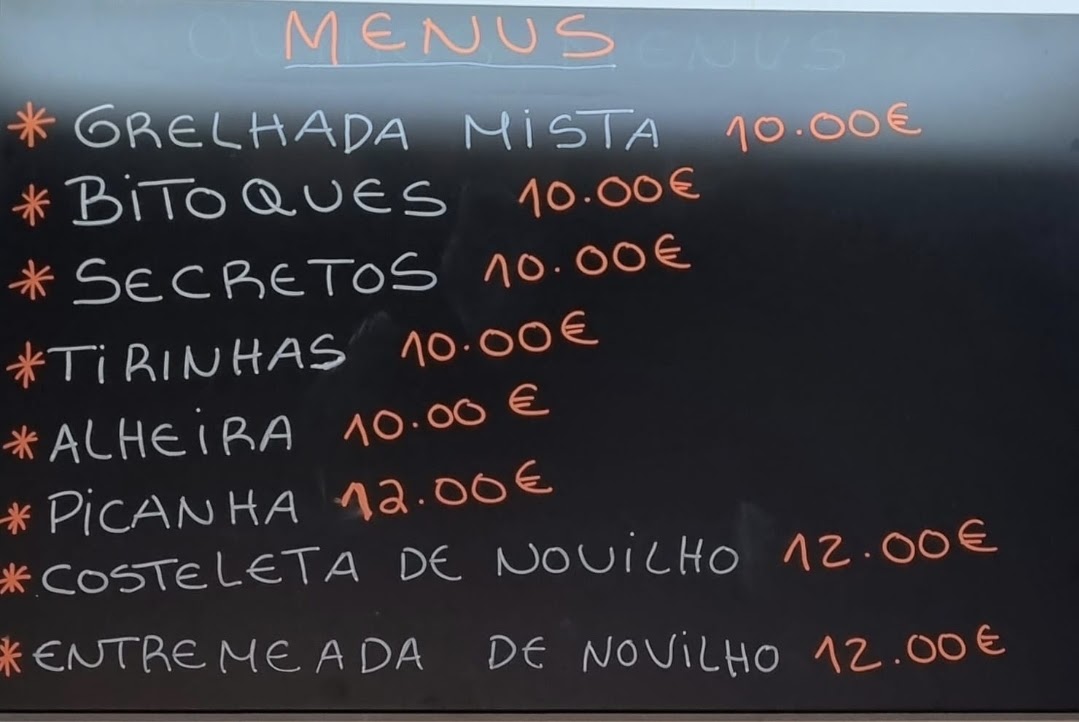 MENUS
* GRELHADA MISTA 10.00€
* BITOQUES 10.00€
* SECRETOS 10.00€
* TIRINHAS 10.00€
* ALHEIRA 10.00 €
* PICANHA 12.00€
* COSTELETA DE NOVILHO 12.00€
* ENTREMEADA DE NOVILHO 12.00€